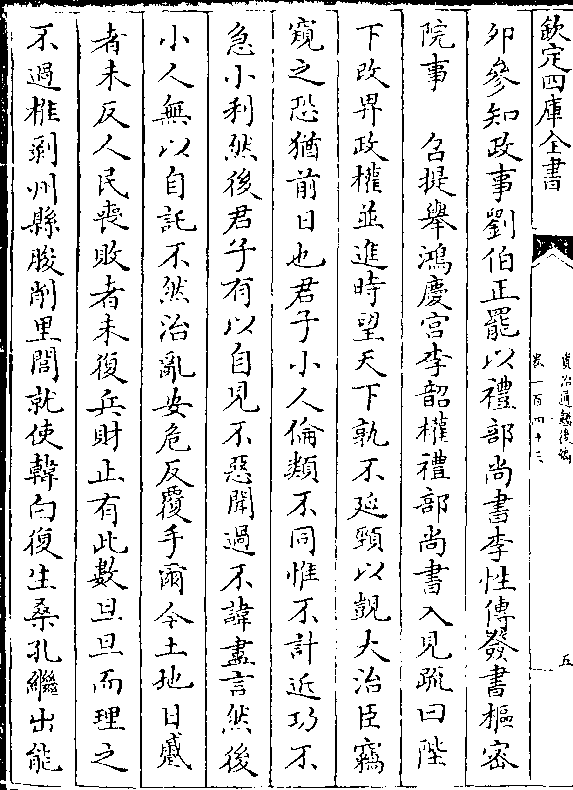 欽定四庫全書
資治通鑑後編
卷一百四十三
五
夘參知政事劉伯正罷以禮部尚書李性傳簽書樞密
院事　召提舉鴻慶宫李韶權禮部尚書入見疏曰陛
下改畀政權並進時望天下孰不延頸以覬大治臣竊
窺之恐猶前日也君子小人倫類不同惟不計近功不
急小利然後君子有以自見不惡聞過不諱盡言然後
小人無以自託不然治亂安危反覆手爾今土地日蹙
者未反人民喪敗者未復兵財止有此數旦旦而理之
不過椎剥州縣朘削里閭就使韓白復生桑孔繼出能